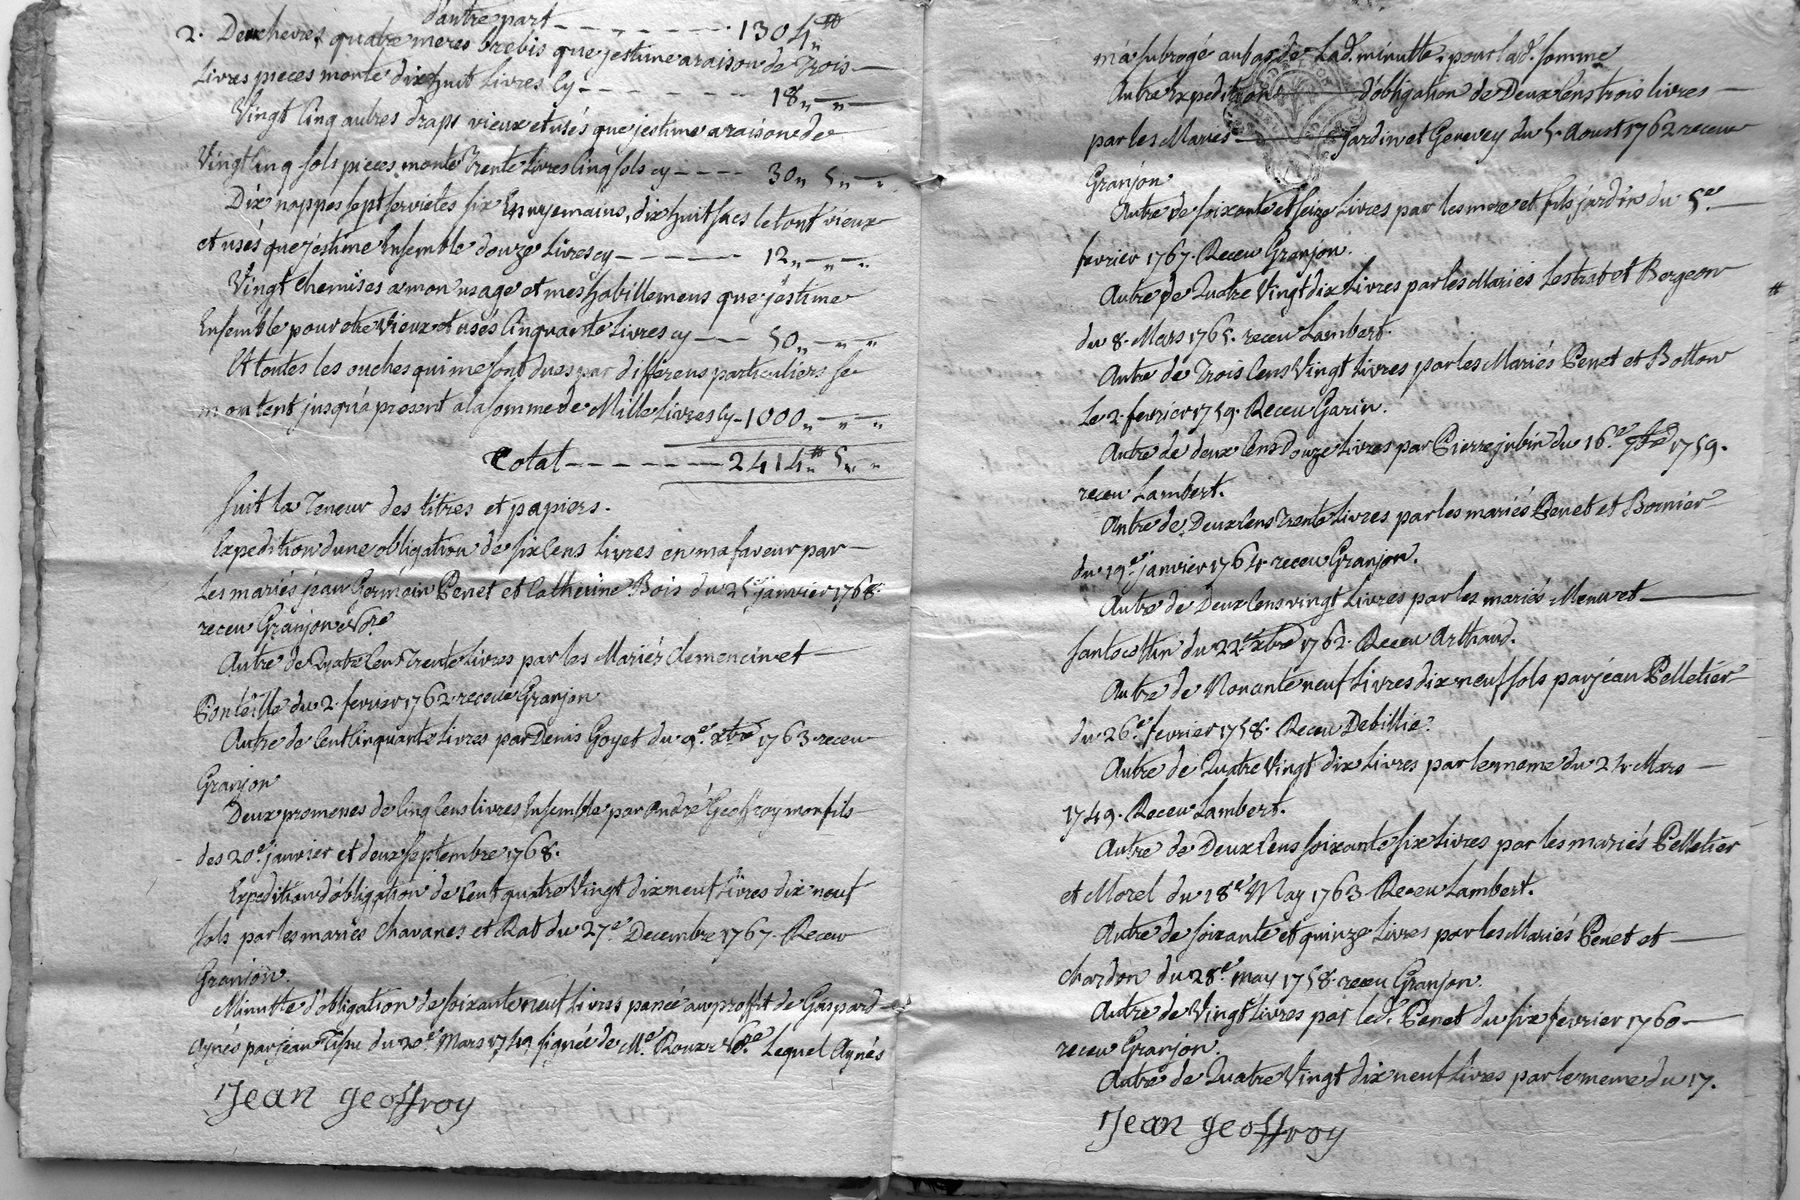 d'autre part - - - - - - - 1304,,₶
2. Deux chevres, quatre meres brebis que jestime a raison de Trois
Livres pieces monte dix huit Livres Cy - - - - - - 18,, - ,, -
Vingt Cinq autres draps vieux et usés que jestime a raison de
Vingt Cinq sols pieces, monte Trente Livres Cinq sols cy - - - - 30,, 5,, - ,,
Dix nappes sept serviettes six Essuyemains, dix huit sacs le tout vieux
et usés que j'estime Ensemble douze Livres cy - - - - - - 12,, - ,, - ,,
Vingt Chemises a mon usage et mes habillemens que j'estime
Ensemble pour etre Vieux et usés Cinquante Livres cy - - - 50,, - ,, - ,,
Et toutes les ouches qui me sont dues par differens particuliers se
montent jusqu'a présent a la somme de Mille Livres Cy - 1000,, - ,, - ,,
Total - - - - - - - 2414,,₶ 5,, - ,,
Suit la Teneur des titres et papiers.
Expedition d'une obligation de six Cens Livres en ma faveur par
Les mariés jean Germain Penet et Catherine Bois du 25e janvier 1768.
receu Granjon No.re
Autre de Quatre Cens Trente Livres par les Mariés Clemencin et
Ponteille du 2. fevrier 1762 receue Granjon
Autre de Cent Cinquante Livres par Denis Goyet du 9.e xbre 1763. receu
Granjon
Deux promesses de Cinq Cens livres Ensemble par André Geoffroy mon fils
des 20e. janvier et deux septembre 1768.
Expedition d'obligation de Cent quatre Vingt dix neuf Livres dix neuf
sols par les mariés Chavanes et Rat du 27.e Decembre 1767. Receu
Granjon.
Minutte d'obligation de soixante neuf Livres passée au proffit de Gaspard
Aynés par jean Tissu du 20.e Mars 1749 signée de M.e Roux No.re Lequel Aynés
Jean geoffroy
m'a subrogé au bas de Lad. minutte, pour lad. somme
Autre Expedition d'obligation de Deux Cens trois livres
par les Mariés Jardin et Genevey du 5. Aoust 1762 receu
Granjon.
Autre de soixante et seize Livres par les mere et fils Jardin du 5.e
fevrier 1767. Receu Granjon.
Autre de Quatre Vingt dix Livres par les Mariés Lestrat et Bergeon
du 8. Mars 1765. receu Lambert.
Autre de Trois Cens Vingt Livres par les Mariés Penet et Botton
Le 2. fevrier 1759. Receu Garin.
Autre de deux Cens Douze Livres par Pierre jubin du 16.e 1759.
receu Lambert.
Autre de Deux Cens Trente Livres par les mariés Penet et Bornier
du 19.e janvier 1764. receu Granjon.
Autre de Deux Cens vingt Livres par les mariés Meuvet
du 22.e xbre 1762. Receu Arthaud.
Autre de Nonante neuf Livres dix neuf sols par jean Pelletier
du 26.e fevrier 1758. Receu Debillie.
Autre de Quatre Vingt dix Livres par le meme du 24 Mars
1749. Receu Lambert.
Autre de Deux Cens soixante six Livres par les mariés Pelletier
et Morel du 18.e May 1763 Receu Lambert.
Autre de soixante et quinze Livres par les Mariés Penet et
Chardon du 28.e may 1758. receu Granjon.
Autre de Vingt Livres par led. Penet du six fevrier 1760
receu Granjon.
Autre de Quatre Vingt dix neuf Livres par le meme du 17.
Jean geoffroy